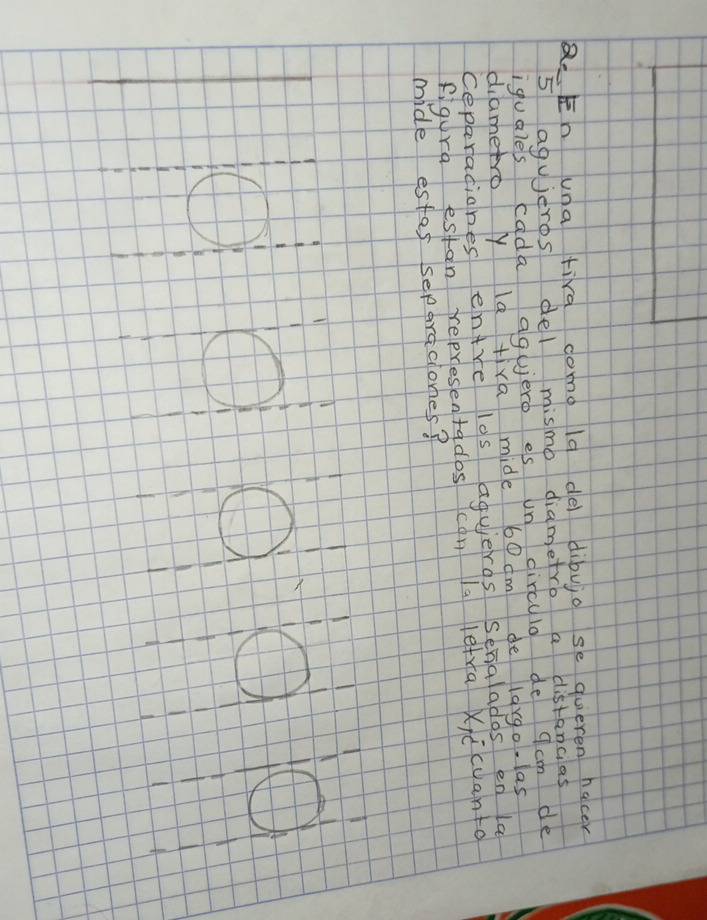 2.- En una tira como la del dibujo se quieren hacer
5 agujeros del mismo diametro a distancias
iguales cada agujero es un circulo de 9cm de
diametro y la tira mide 60cm de largo. las
Ceparaciones entre los agujeros Señalados en la
figura estan representados con la letra X,¿cuanto
mide estas separaciones?